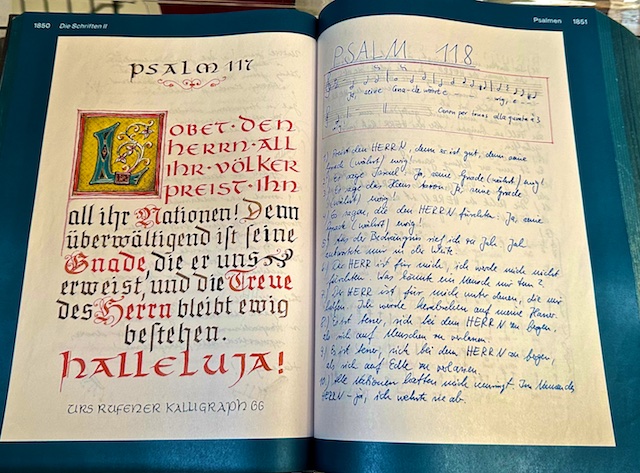 1850 Die Schriften II
PSALM 117
LOBET·DEN
HERRN·ALL
IHR·VÖLKER
PREIST·IHN
all ihr Nationen! Denn
überwältigend ist seine
Gnade, die er uns
erweist, und die Treue
des Herrn bleibt ewig
bestehen.
halleluja!
URS RUFENER KALLIGRAPH 66
Psalmen 1851
PSALM 118
Ja, seine Gna-de währt e - - - wig, e - -
Canon per tonos alla quinta à 3
1) Preist den HERRN, denn er ist gut, denn seine
Gnade (währt) ewig!
2) Es sage Israel: Ja, seine Gnade (währt) ewig!
3) Es sage das Haus Aaron: Ja, seine Gnade
(währt) ewig!
4) Es sagen, die den HERRN fürchten: Ja, seine
Gnade (währt) ewig!
5) Aus der Bedrängnis rief ich zu Jah: Jah
antwortete mir in der Weite.
6) Der HERR ist für mich, ich werde mich nicht
fürchten. Was könnte ein Mensch mir tun?
7) Der HERR ist für mich unter denen, die mir
helfen. Ich werde herabsehen auf meine Hasser.
8) Es ist besser, sich bei dem HERRN zu bergen,
als sich auf Menschen zu verlassen.
9) Es ist besser, sich bei dem HERRN zu bergen,
als sich auf Edle zu verlassen.
10) Alle Nationen hatten mich umringt. Im Namen des
HERRN - ja, ich wehrte sie ab.